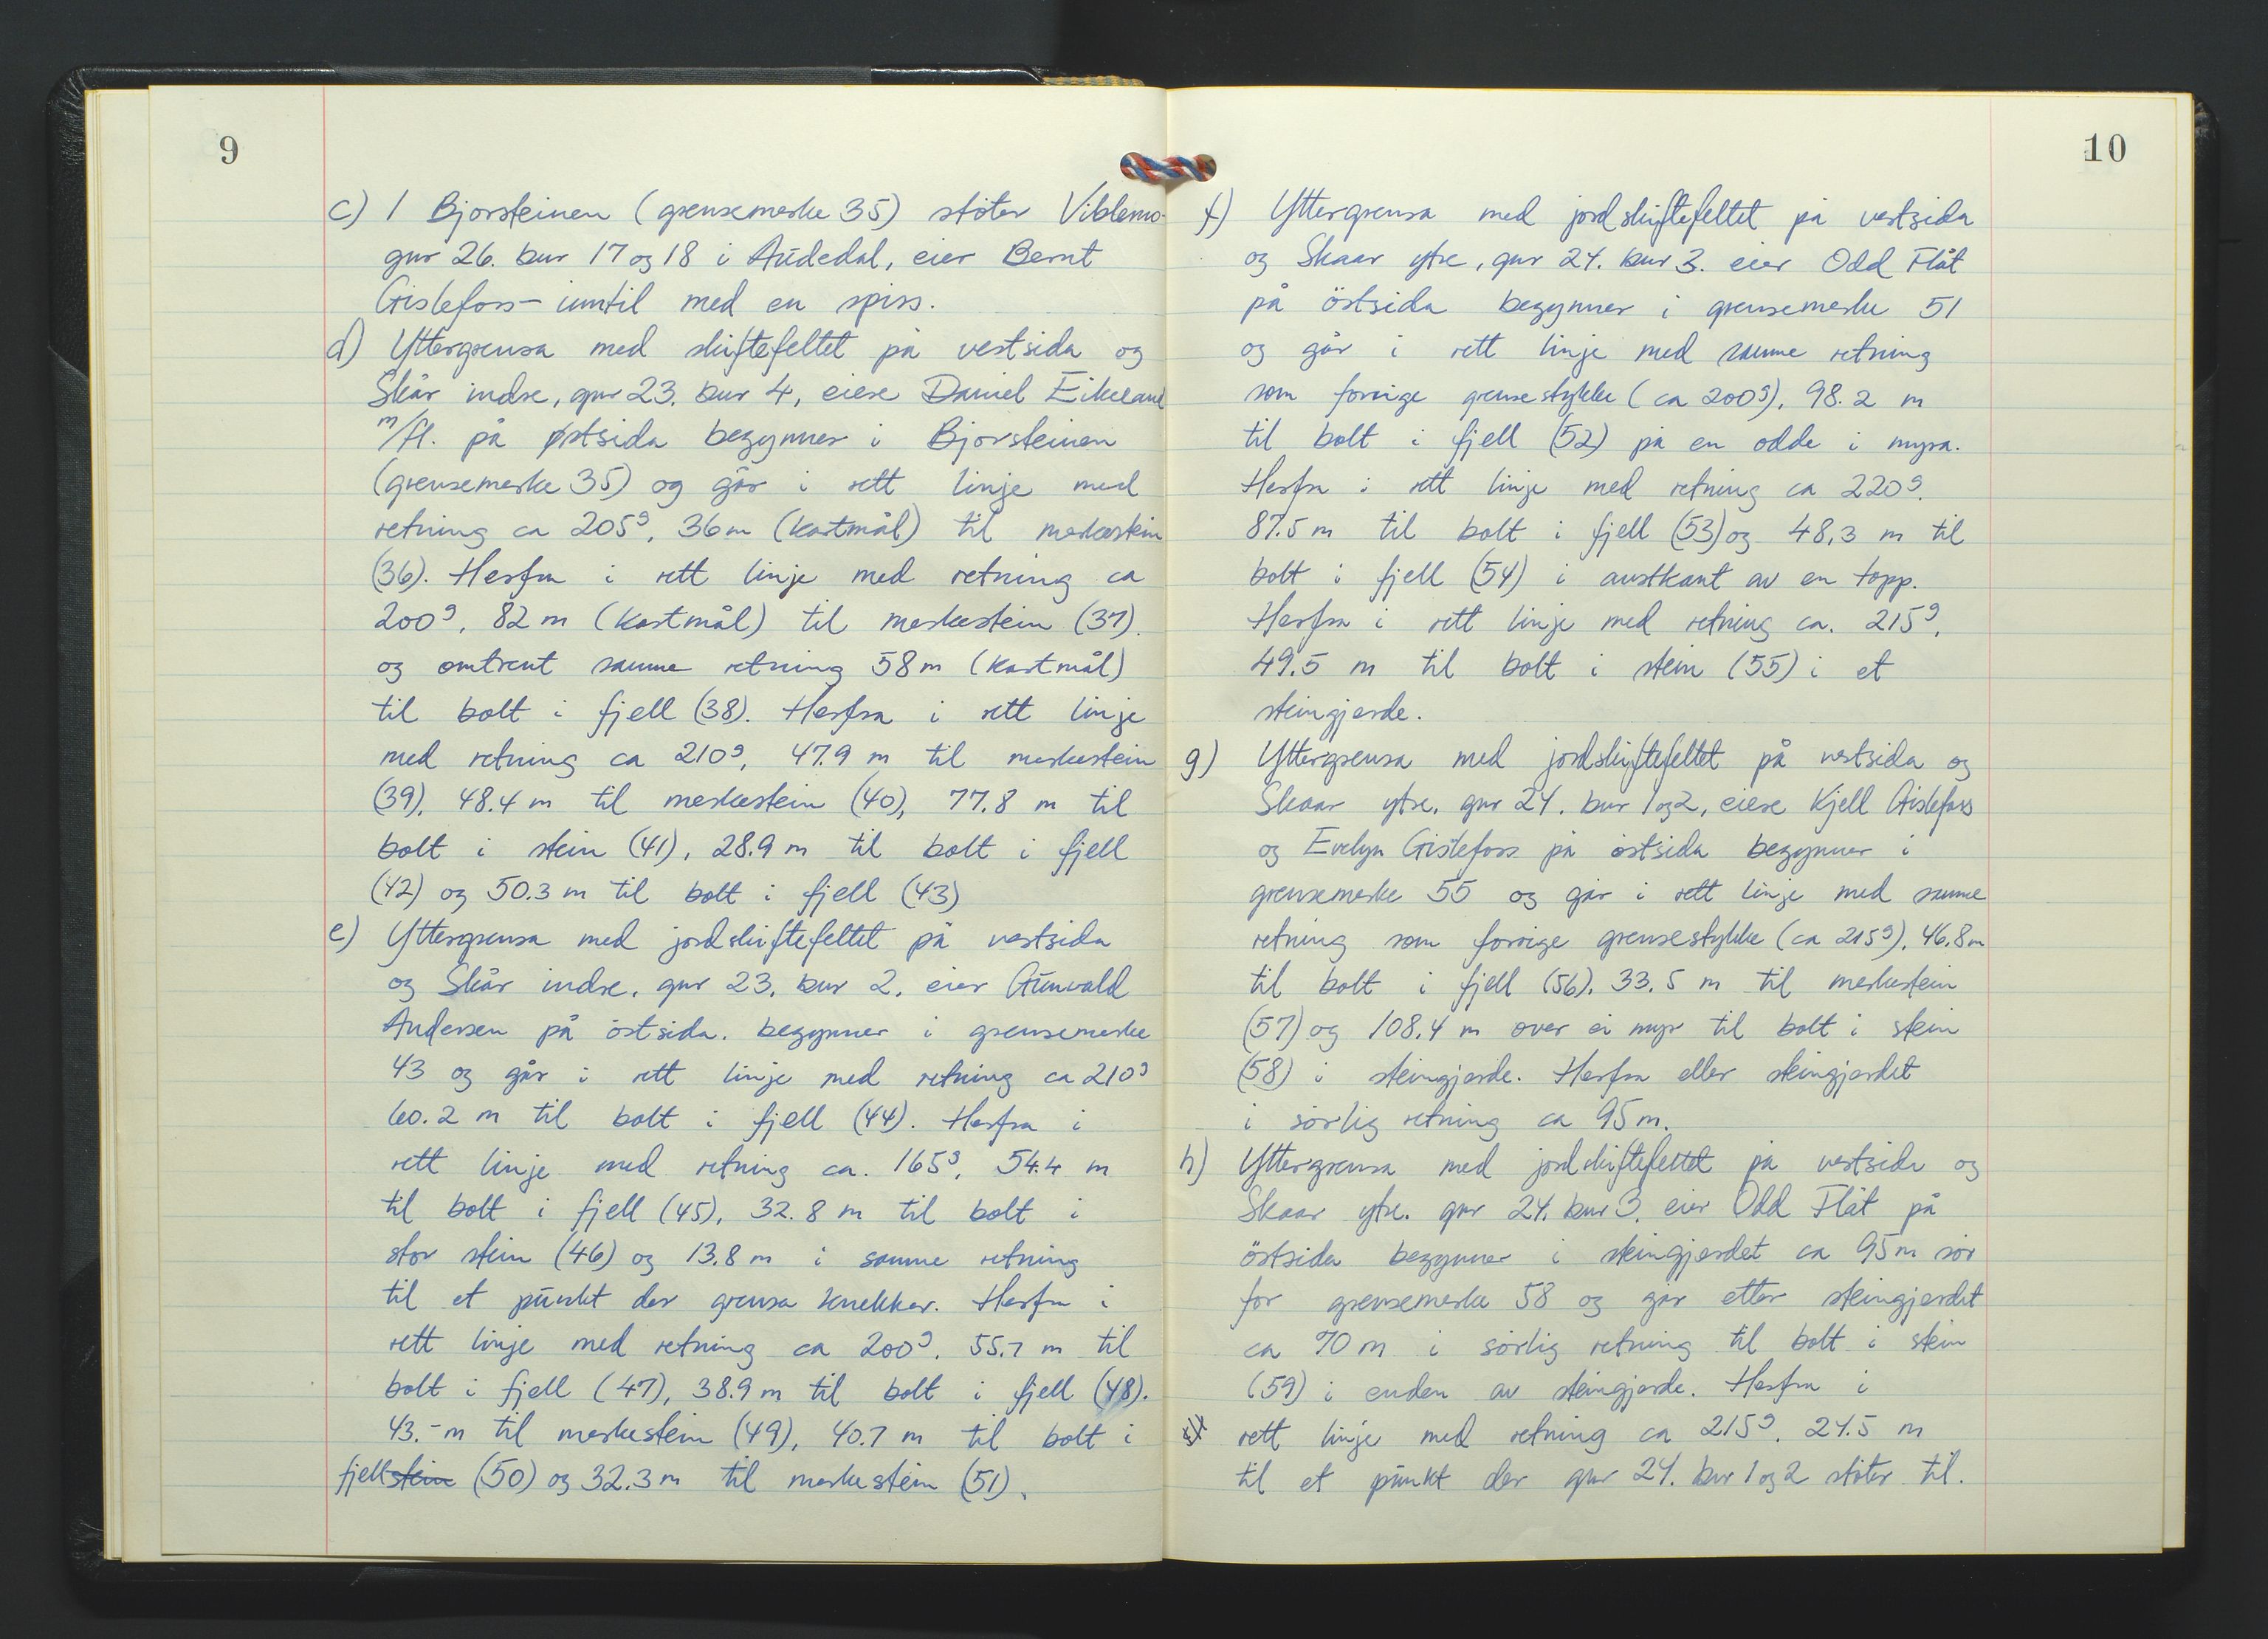 9
c) I Bjorsteinen (grensemerke 35) støter Viblemo-
gnr 26. bnr 17 og 18 i Audedal, eier Bernt
Gislefoss - inntil med en spiss.
d) Yttergrensa med skiftefeltet på vestsida og
Skår indre, gnr 23. bnr 4, eiere Daniel Eikeland
m/fl. på østsida begynner i Bjorsteinen
(grensemerke 35) og går i rett linje med
retning ca 205g, 36m (kartmål) til merkestein
(36). Herfra i rett linje med retning ca
200g, 82 m (kartmål) til merkestein (37).
og omtrent samme retning 58 m (kartmål)
til bolt i fjell (38). Herfra i rett linje
med retning ca 210g, 47.9 m til merkestein
(39), 48.4 m til merkestein (40), 77.8 m til
bolt i stein (41), 28.9 m til bolt i fjell
(42) og 50.3 m til bolt i fjell (43)
e) Yttergrensa med jordskiftefeltet på vestsida
og Skår indre. gnr 23. bnr 2. eier Gunvald
Andersen på østsida. begynner i grensemerke
43 og går i rett linje med retning ca 210g
60.2 m til bolt i fjell (44). Herfra i
rett linje med retning ca. 165g, 54.4 m
til bolt i fjell (45), 32.8 m til bolt i
stor stein (46) og 13.8 m i samme retning
til et punkt der grensa knekker. Herfra i
rett linje med retning ca 200g. 55.7 m til
bolt i fjell (47), 38.9 m til bolt i fjell (48).
43.- m til merkestein (49), 40.7 m til bolt i
fjell stein (50) og 32.3 m til merkestein (51).
10
f) Yttergrensa med jordskiftefeltet på vestsida
og Skaar ytre, gnr 24. bnr 3. eier Odd Flåt
på østsida begynner i grensemerke 51
og går i rett linje med samme retning
som forrige grensestykke (ca 200g), 98.2 m
til bolt i fjell (52) på en odde i myra.
Herfra i rett linje med retning ca 220g.
87.5 m til bolt i fjell (53) og 48,3 m til
bolt i fjell (54) i austkant av en topp.
Herfra i rett linje med retning ca. 215g,
49.5 m til bolt i stein (55) i et
steingjerde.
g) Yttergrensa med jordskiftefeltet på vestsida og
Skaar ytre. gnr 24. bnr 1 og 2, eiere Kjell Gislefoss
og Evelyn Gislefoss på østsida begynner i
grensemerke 55 og går i rett linje med samme
retning som forrige grensestykke (ca 215g), 46.8 m
til bolt i fjell (56). 33.5 m til merkestein
(57) og 108.4 m over ei myr til bolt i stein
(58) i steingjerde. Herfra etter steingjerdet
i sørlig retning ca 95 m.
h) Yttergrensa med jordskiftefeltet på vestsida og
Skaar ytre. gnr 24. bnr 3. eier Odd Flåt på
østsida begynner i steingjerdet ca 95 m sør
for grensemerke 58 og går etter steingjerdet
ca 70 m i sørlig retning til bolt i stein
(59) i enden av steingjerde. Herfra i
rett linje med retning ca 215g. 24.5 m
til et punkt der gnr 24. bnr 1 og 2 støter til.